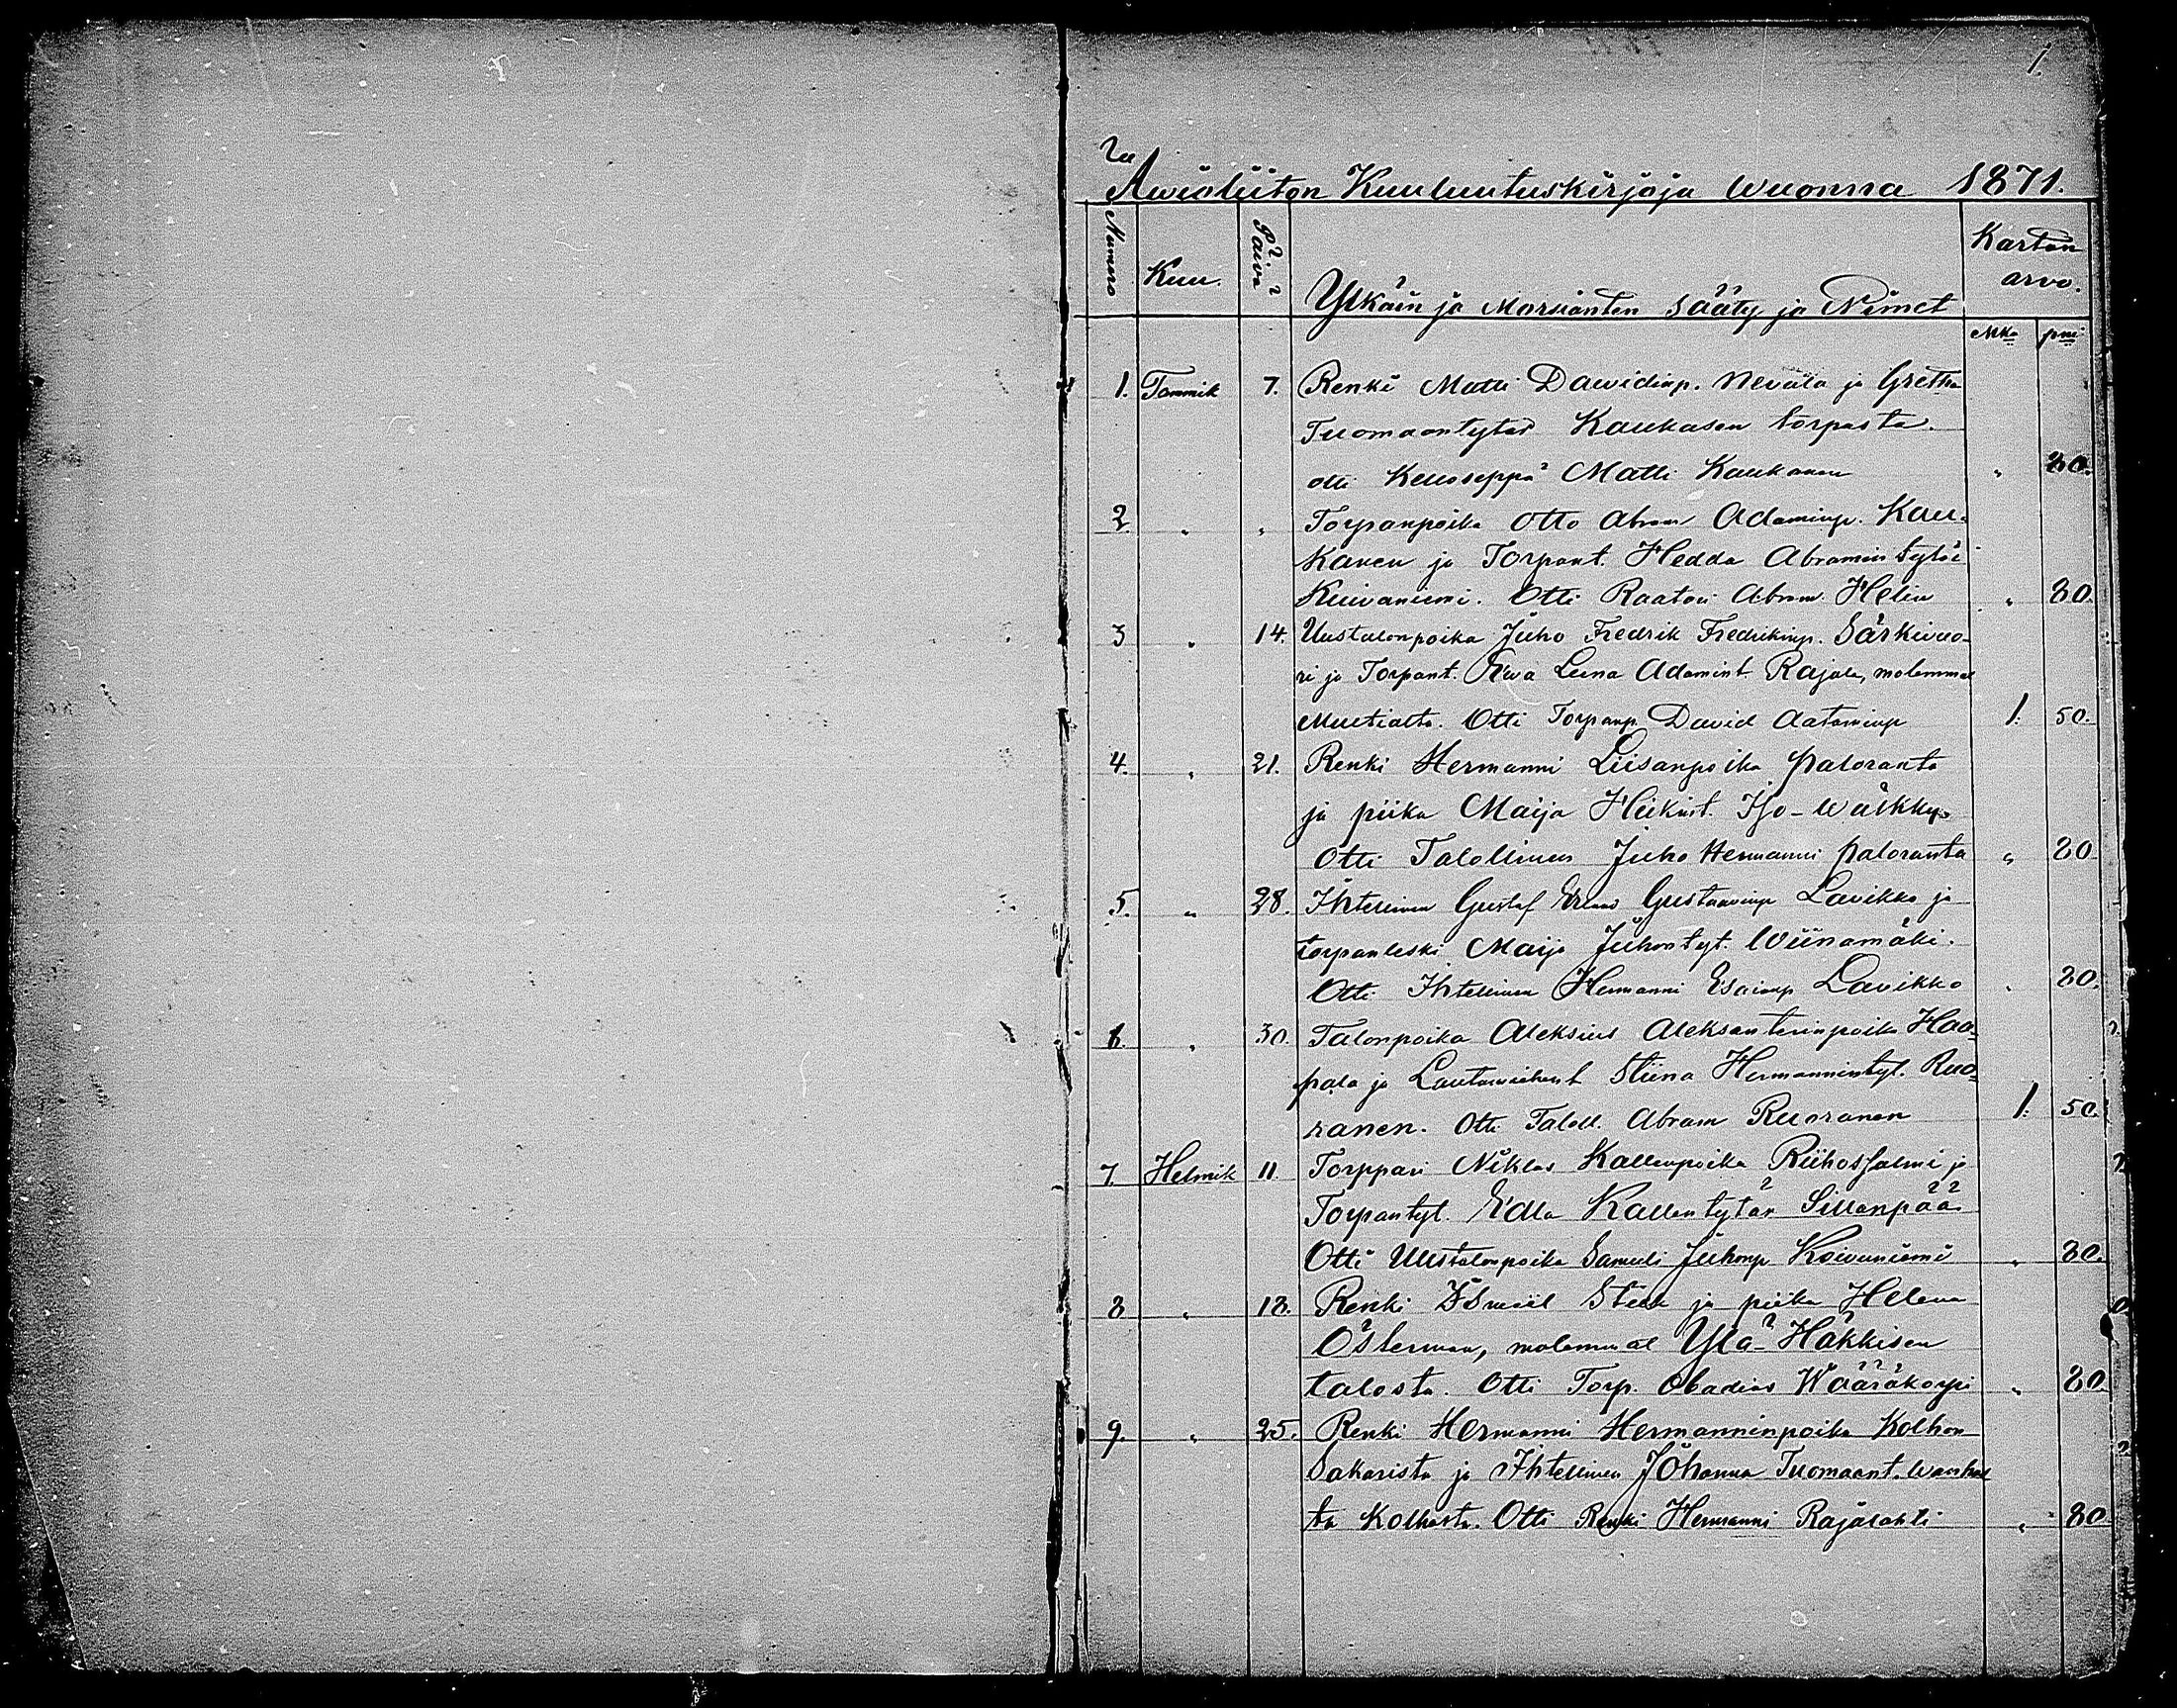 1.
Awioliiton Kuuluutuskirjoja wuonna 1871.
Numero Kuu. Päivä Ylkäin ja Morsianten sääty ja Nimet Kartan arvo.
Mka pni
1. Tammik 7. Renki Matti Dawidinp. Nevala ja Gretha
Tuomaantytär Kaukasen torpasta.
otti Kelloseppä Matti Kaukanen " 80.
2 " " Torpanpoika Otto Abram Adaminp. Kau-
kanen ja Torpant. Hedda Abramin tytär
Kuivaniemi. Otti Raatari Abram Helin " 80.
3 " 14. Uustalonpoika Juho Fredrik Fredrikinp. Särkivuo-
ri ja Torpant. Ewa Leena Adamint. Rajala, molemmat
Multialta. Otti Torpanp. David Aataminp 1. 50.
4. " 21. Renki Hermanni Liisanpoika Paloranta
ja piika Maija Heikint. Iso-Wälkky.
Otti Talollinen Juho Hermanni Paloranta " 80
5. " 28. Ihtellinen Gustaf Gustaavinp Lavikko ja
torpanleski Maija Juhontyt. Wiinamäki.
Otti Ihtellinen Hermanni Esaianp Lavikko " 80.
6. " 30. Talonpoika Aleksius Aleksanterinpoika Haa-
pala ja Lautamiehent Stiina Hermannintyt. Ruo-
ranen. Otti Taloll. Abram Ruoranen 1. 50.
7. Helmik 11. Torppari Niklas Kallenpoika Riihossalmi ja
Torpantyt. Edla Kallentytär Sillanpää
Otti Uustalonpoika Samuli Juhonp Koivuniemi " 80.
8 " 18. Renki ja piika Helena
Österman, molemmat Ylä-Häkkisen
talosta. Otti Torp. Obadias Wääräkorpi " 80.
9. " 25. Renki Hermanni Hermanninpoika Kolhon
Sakarista ja Ihtellinen Johanna Tuomaant.
ta Kolhosta. Otti Renki Hermanni Rajalahti " 80